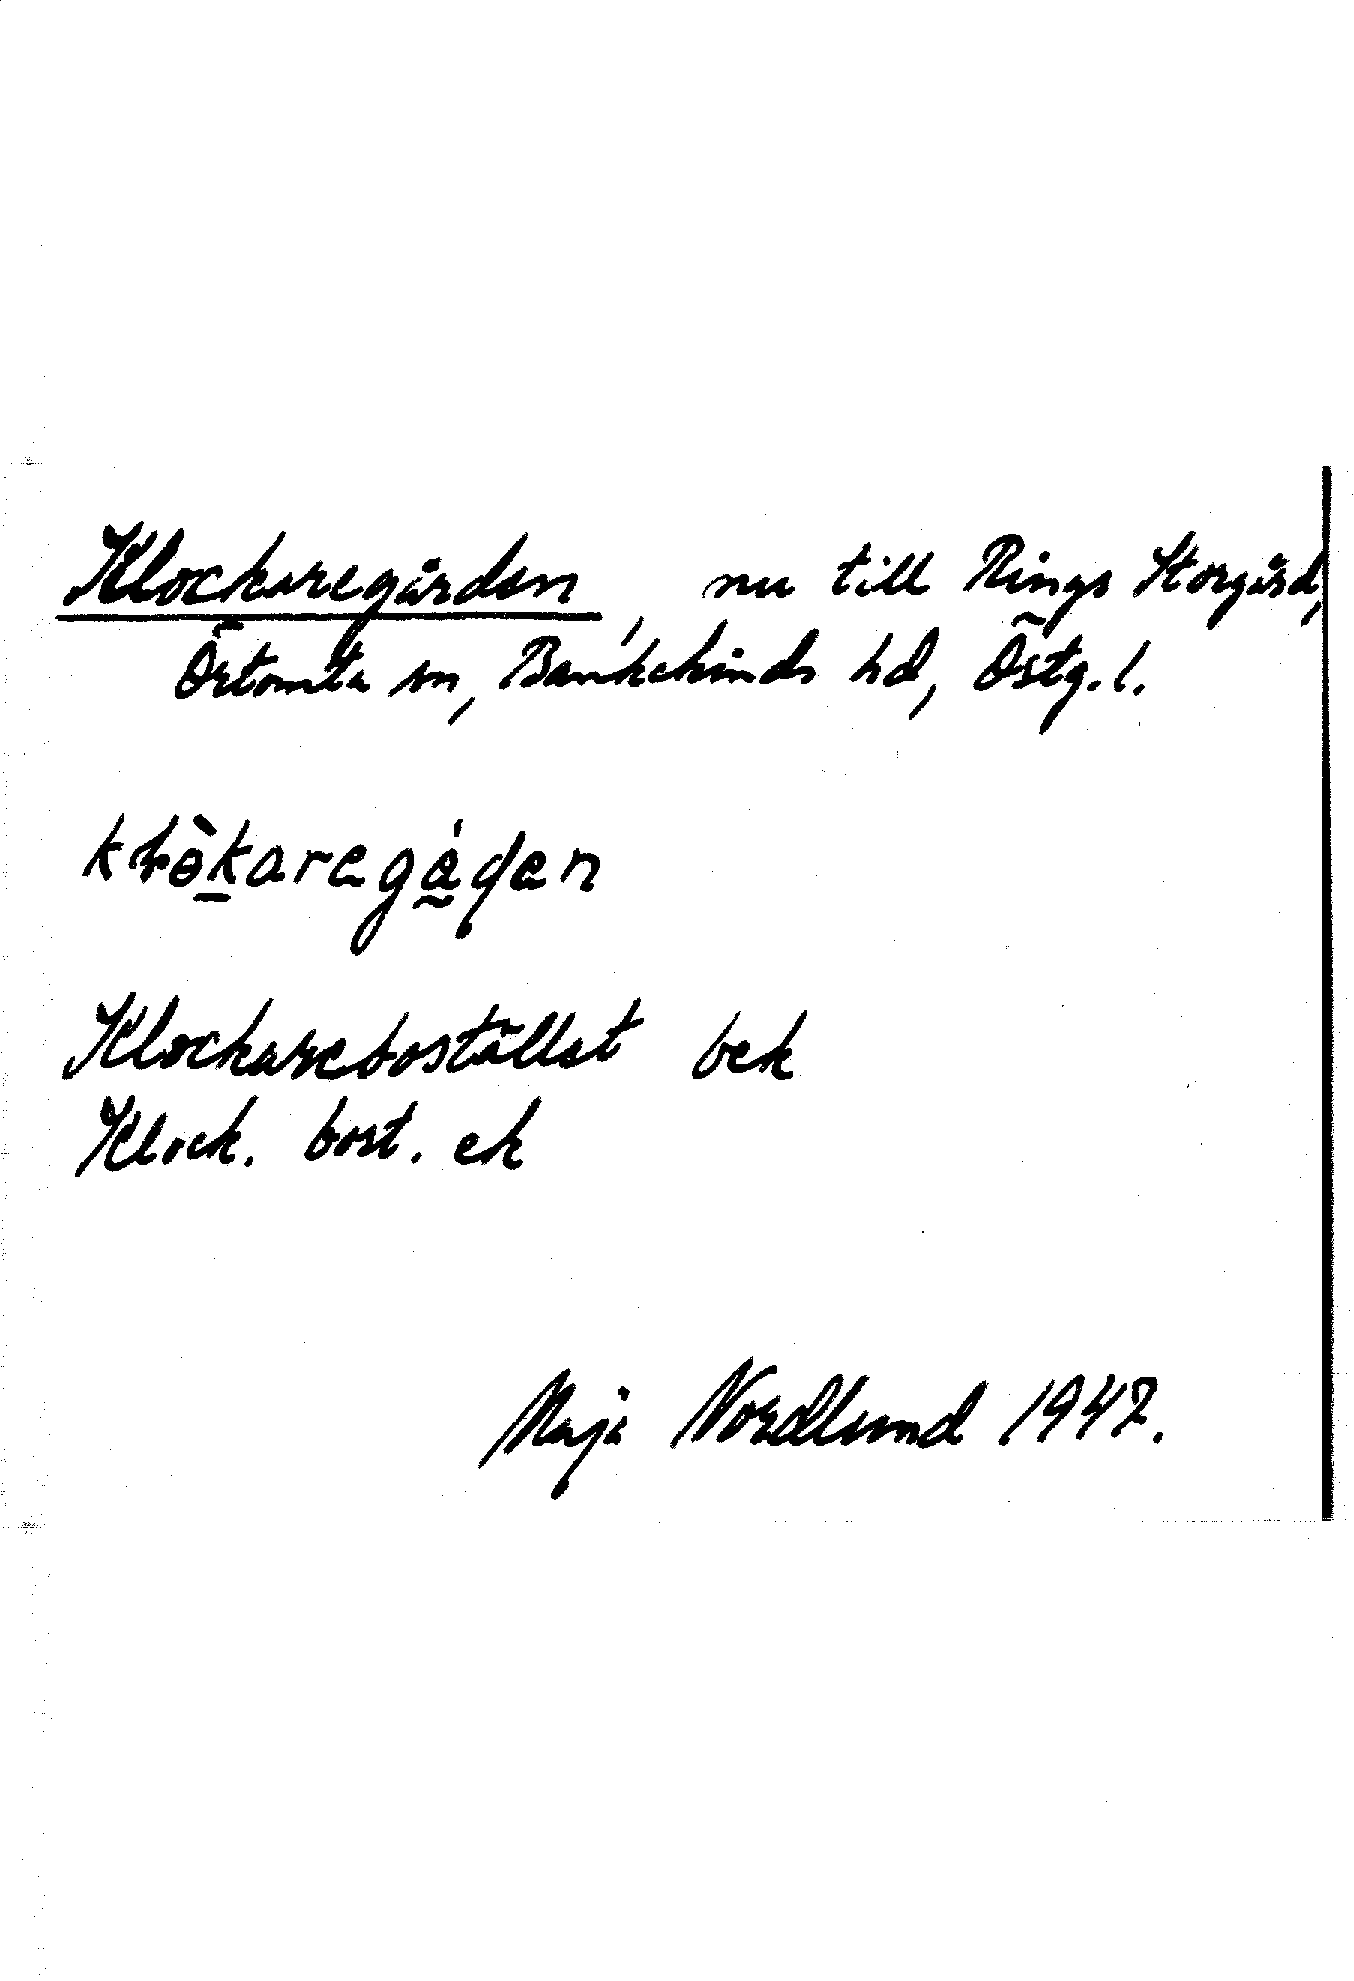 Klockaregården, nu till Rings Storgård,
Örtomta sn, Bankekinds hd, Östg. l.
Klockarebostället bek
Klock. bost. ek
Maja Nordlund 1947.